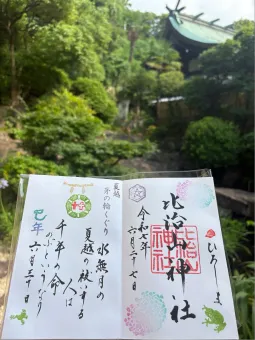 ひろしま
比治山神社
比治山神社
令和七年
六月二十七日
夏越
茅の輪くぐり
水無月の
夏越の祓する
人は
千年の命
のぶというなり
六月三十日
巳年